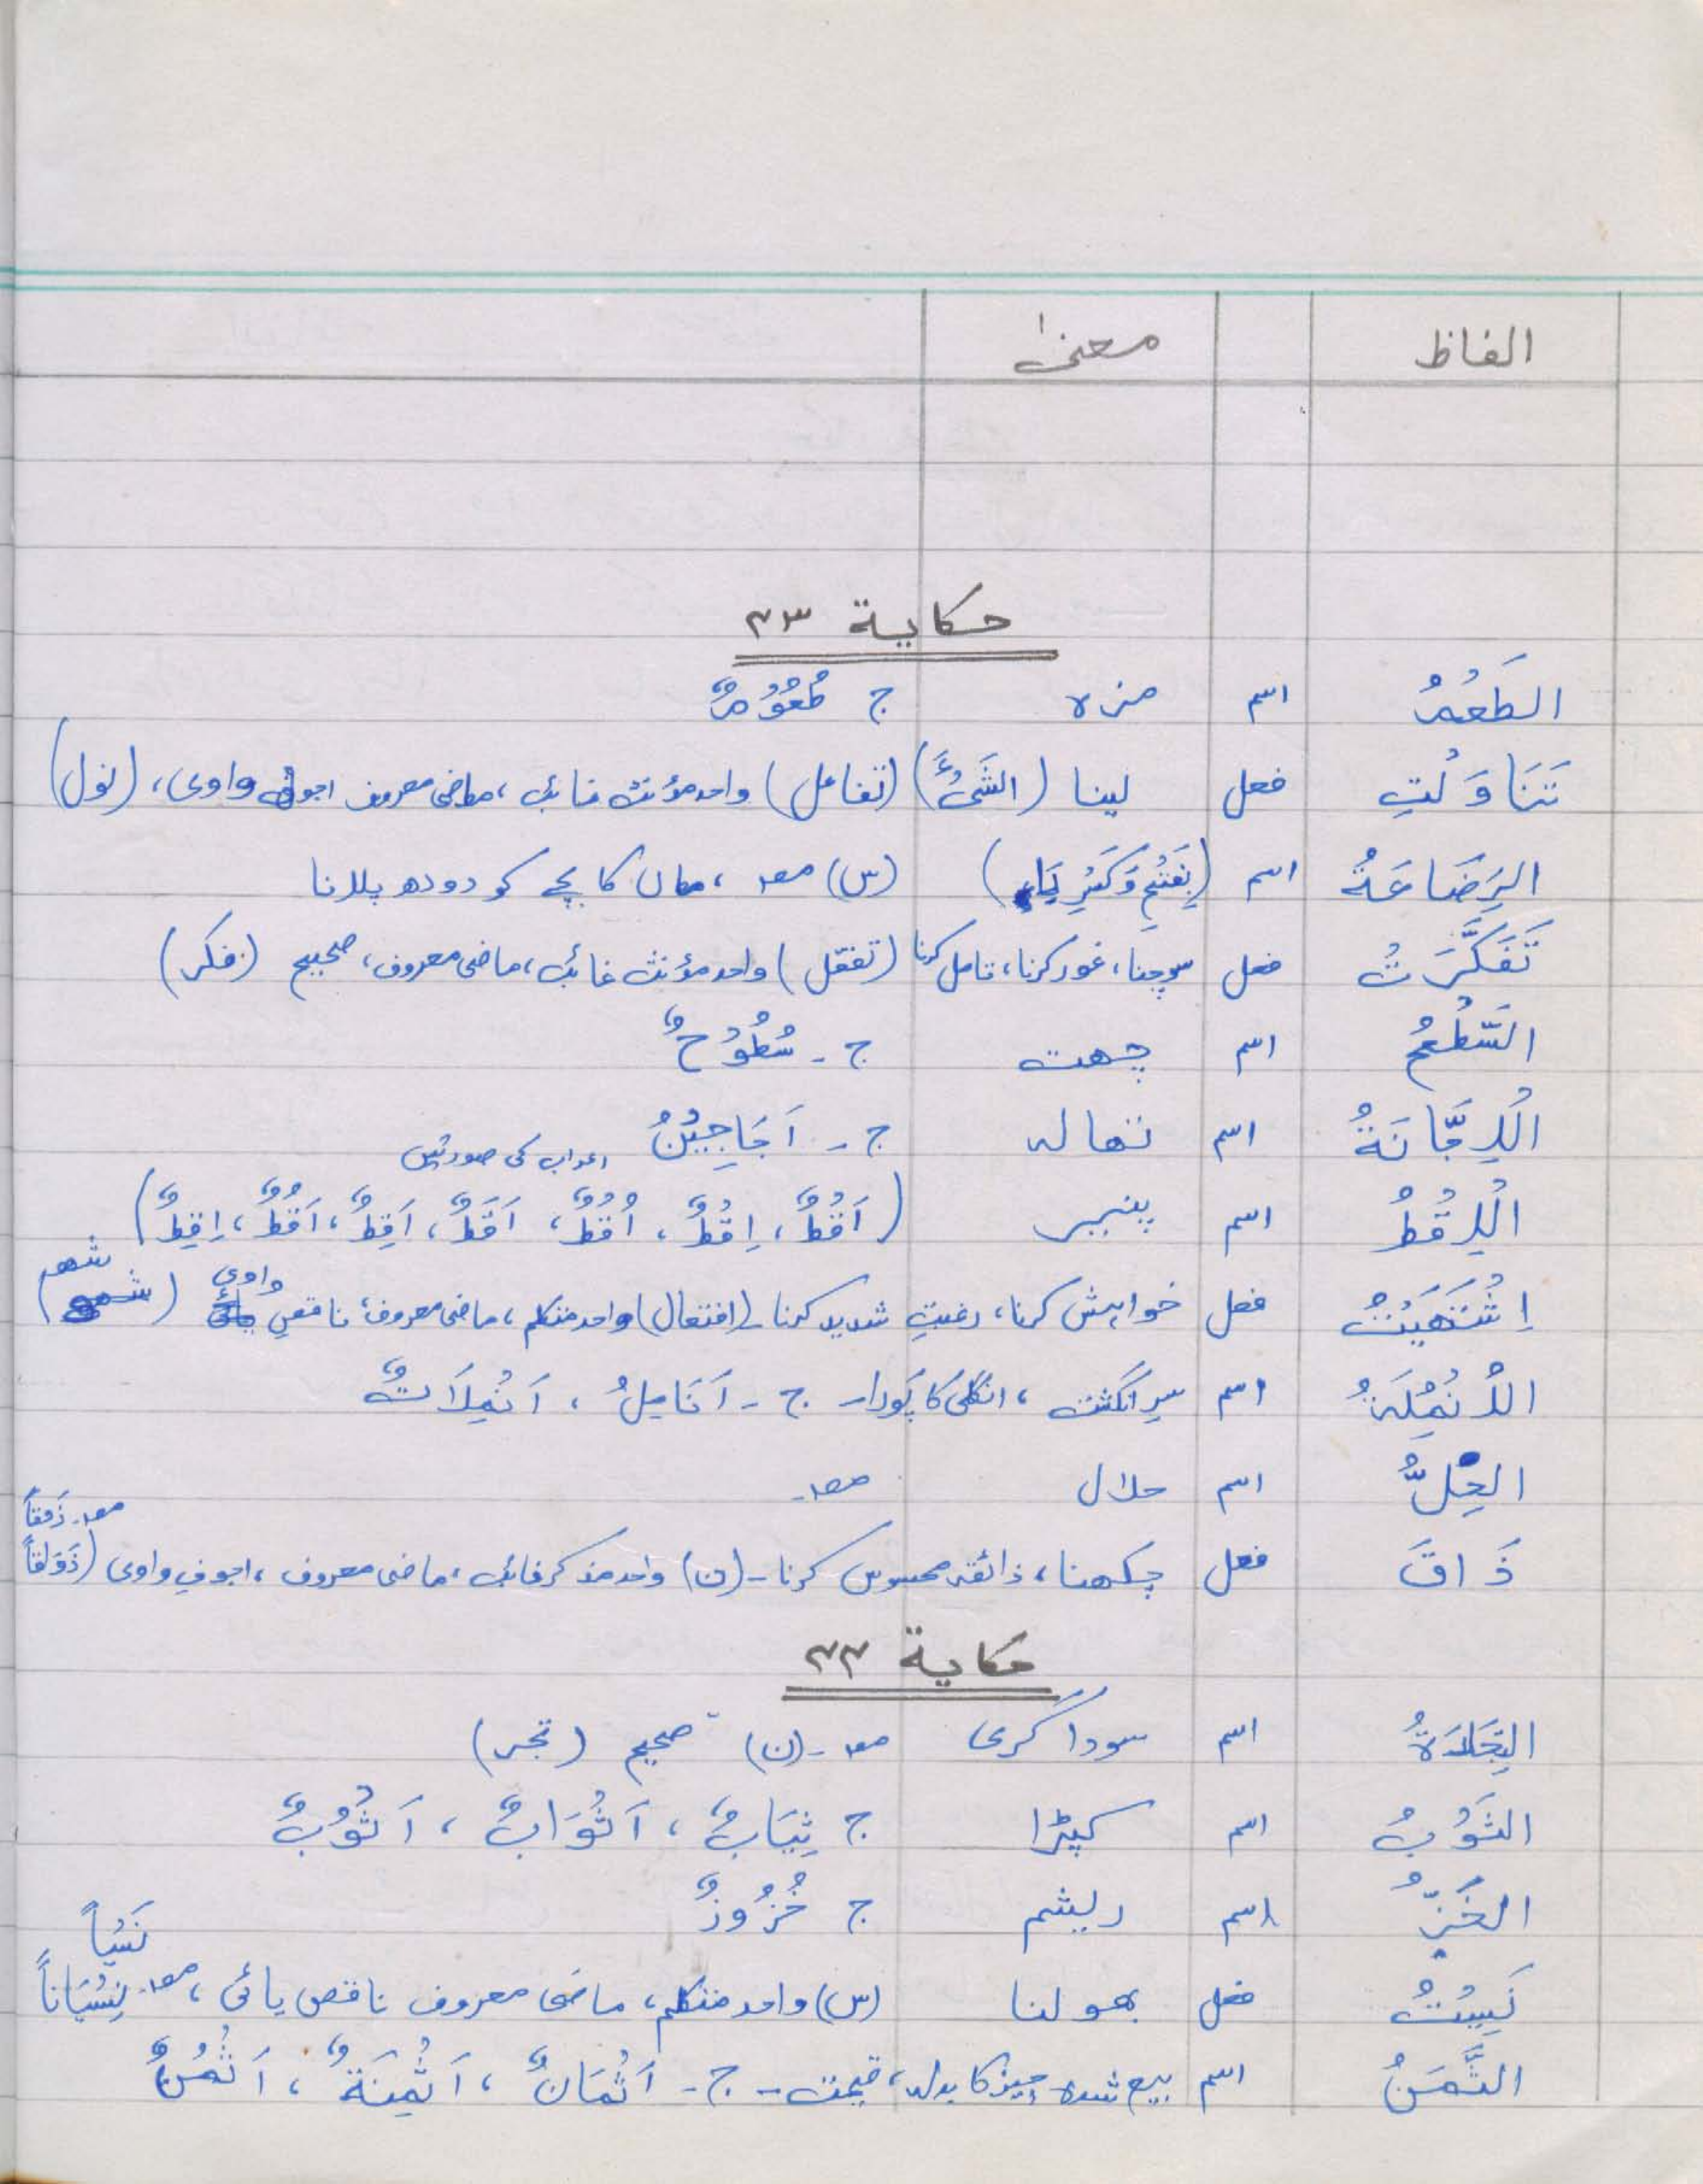 الفاظ معنیٰ
حکایة ۴۳
الطَعْمُ اسم مزہ ج طُعُوْمٌ
تَنَاوَلْتِ فعل لینا (الشَیْءَ) (تفاعل) واحد مؤنث غائب، ماضی معروف اجوف واوی، (نول)
الرَضَاعَةُ اسم (بِفَتْحِ وَکَسْرِ رَاء) (س) مصد، ماں کا بچے کو دودھ پلانا
تَفَکَّرَتْ فعل سوچنا، غور کرنا، تامل کرنا (تفعّل) واحد مؤنث غائب، ماضی معروف، صحیح (فکر)
السَّطْحُ اسم چھت ج۔ سُطُوْحٌ
اَلْاِجَّانَةُ اسم نہالہ ج۔ اَجَاجِیْنُ
اعراب کی صورتیں
اَلْاِقْطُ اسم پنیر (اَقْطٌ، اِقْطٌ، اُقْطٌ، اَقَطٌ، اَقِطٌ، اَقُطٌ، اِقِطٌ)
اِشْتَهَیْتُ فعل خواہش کرنا، رغبتِ شدید کرنا (افتعال) واحد متکلم، ماضی معروف، ناقص واوی (شھو)
الْاُنْمُلَةُ اسم سرِ انگشت، انگلی کا پَورا۔ ج۔ اَنَامِلُ، اَنْمِلَاتٌ
الحِلُّ اسم حلال مصد۔
ذَاقَ فعل چکھنا، ذائقہ محسوس کرنا۔ (ن) واحد مذکر غائب، ماضی معروف، اجوف واوی (ذَوَاقاً مصد۔ ذَوْقاً
حکایة ۴۴
التِجَارَةُ اسم سوداگری مصد۔ (ن) صحیح (تجر)
الثَوْبُ اسم کپڑا ج ثِیَابٌ، اَثْوَابٌ، اَثْوُبٌ
الخَزُّ اسم ریشم ج خُزُوزٌ
نَسِیْتُ فعل بھولنا (س) واحد متکلم، ماضی معروف ناقص یائی، مصد۔ نِسْیَاناً نَسْیاً
الثَّمَنُ اسم بیع شدہ چیز کا بدلہ، قیمت۔ ج۔ اَثْمَانٌ، اَثْمِنَةٌ، اَثْمُنٌ